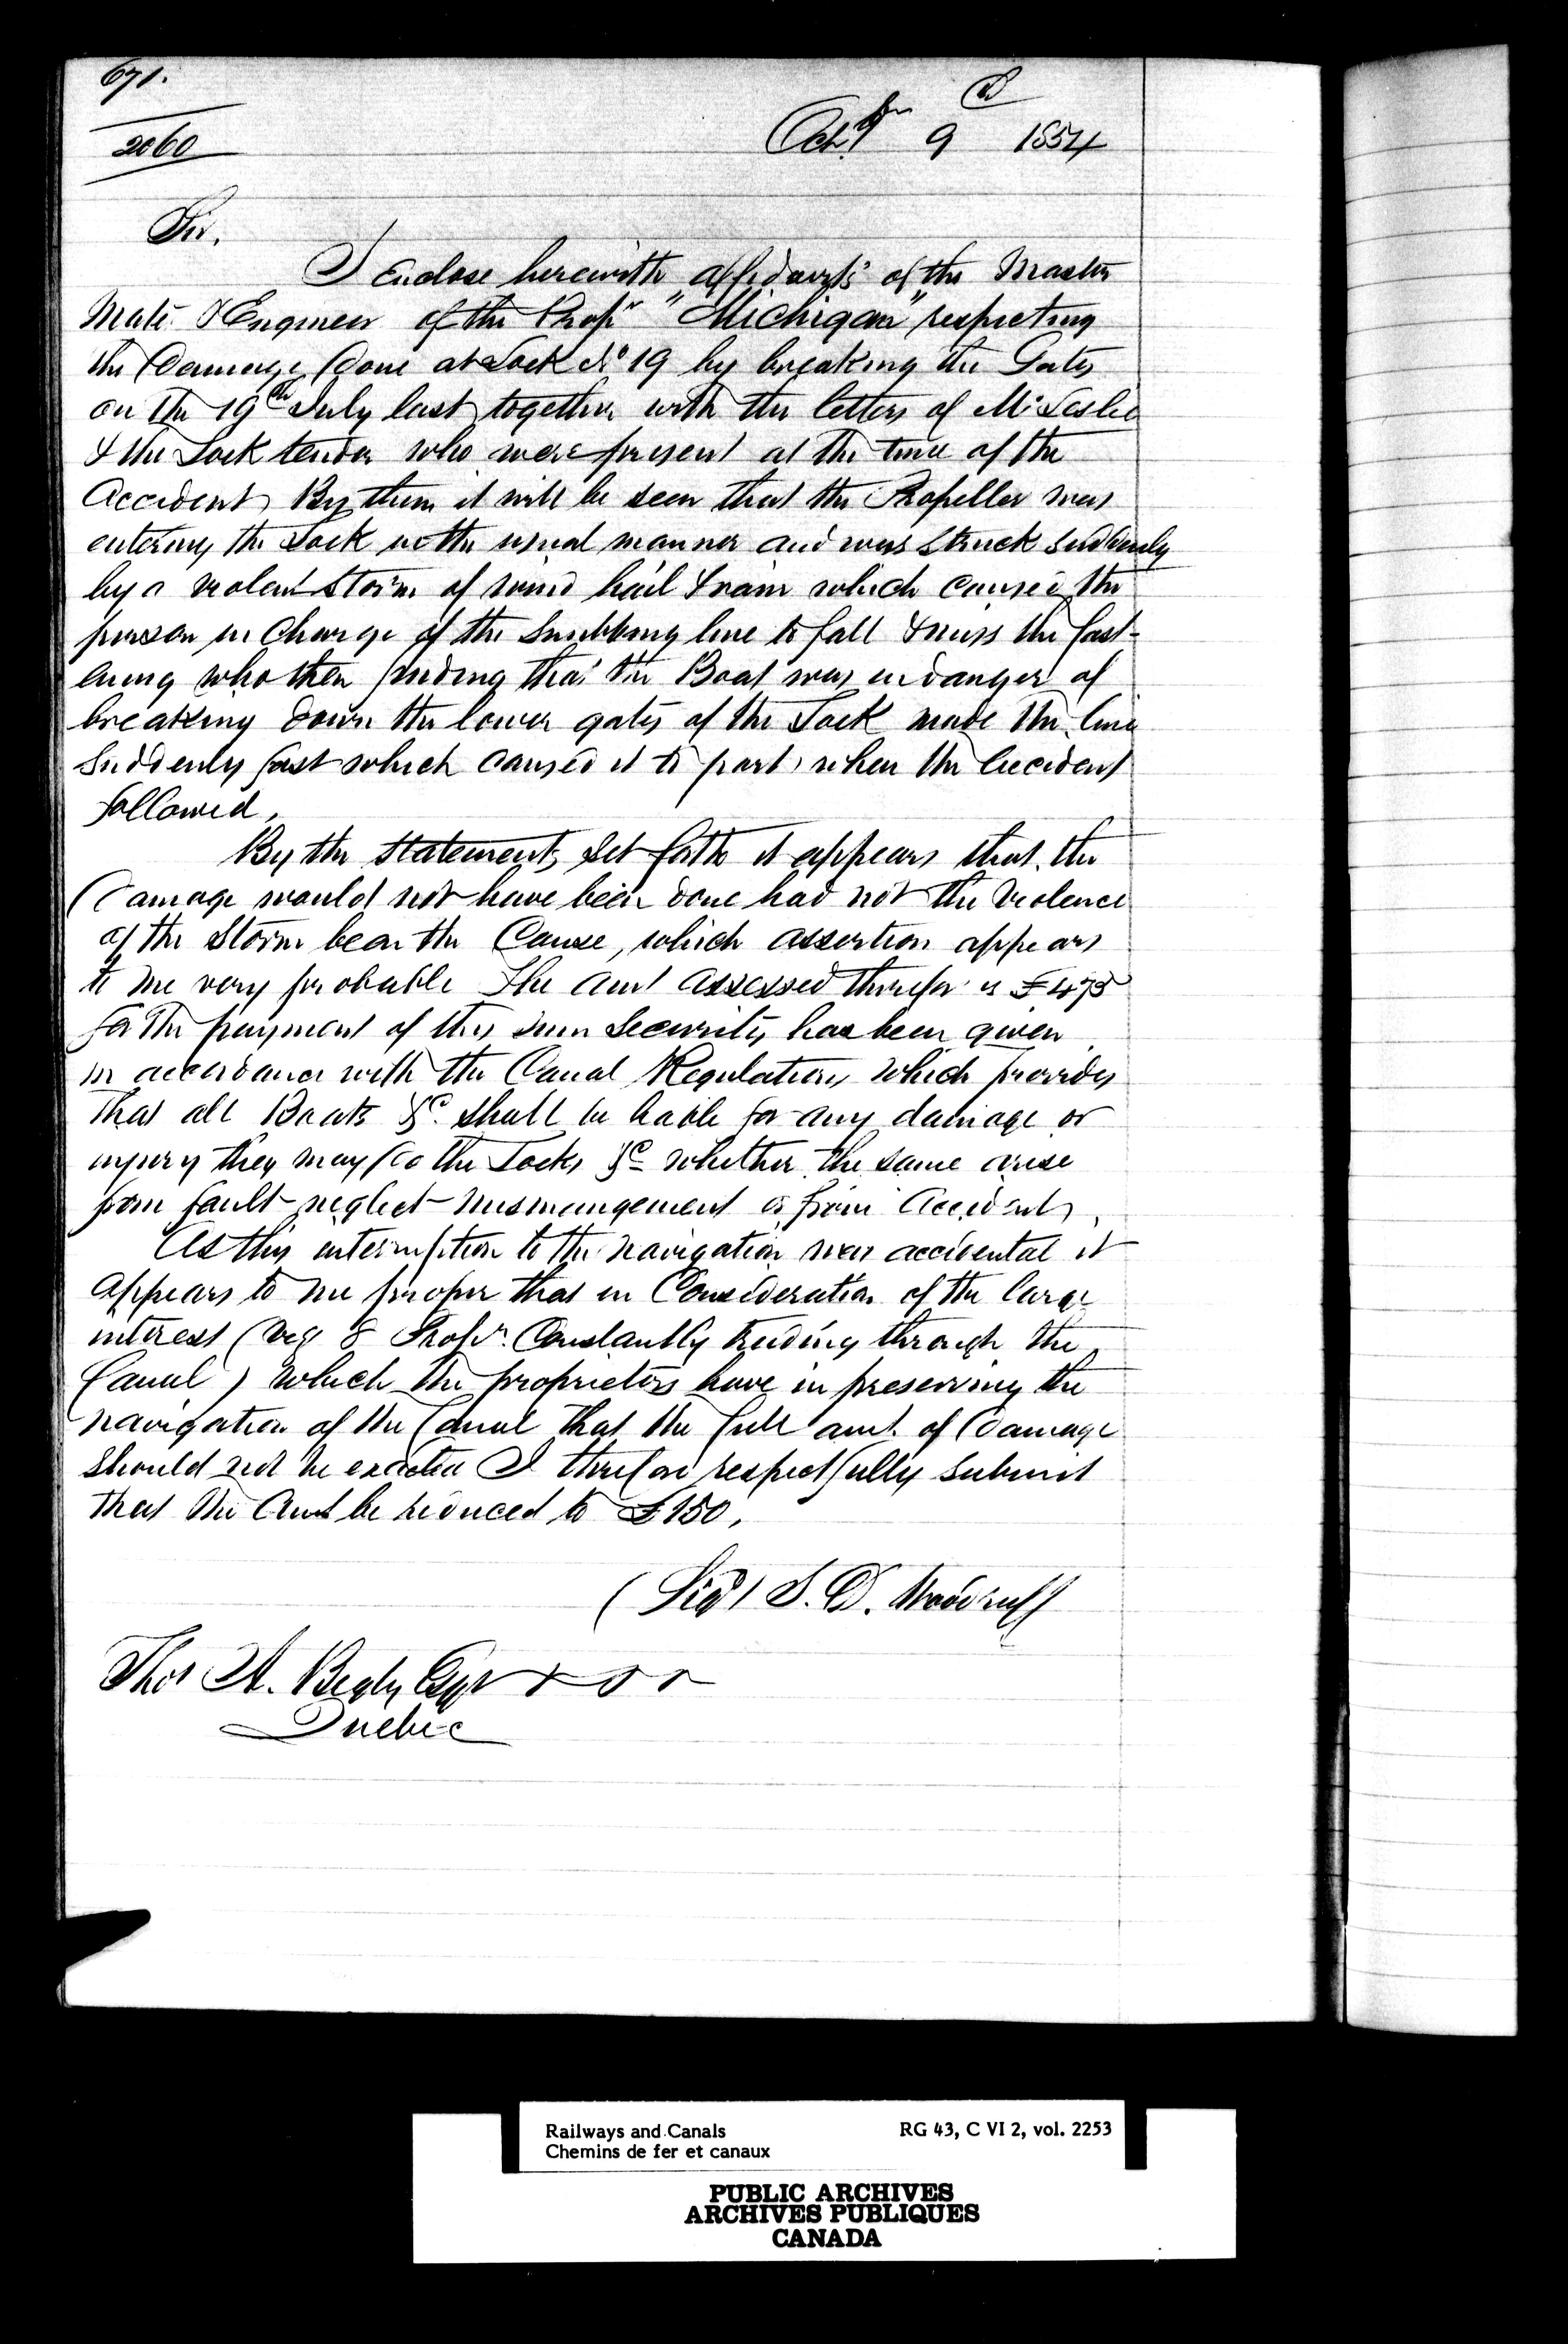 671.
2060
Octr 9 1854
Sir,
I Enclose herewith affidavits of the Master
Mate & Engineer of the Propr "Michigan" respecting
the Damage Done at Lock No 19 by breaking the Gates
on the 19th July last together with the letters of Mr Leslie
& the Lock tender who were present at the time of the
Accident, By them it will be seen that the Propeller was
entering the Lock in the usual manner and was struck suddenly
by a violent storm of wind hail & rain which caused the
person in Charge of the Snubbing line to fall & miss the fast-
ening who then finding that the Boat was in danger of
breaking down the lower gates of the Lock made the line
Suddenly fast which caused it to part, when the Accident
followed,
By the statements, set forth it appears that the
Damage would not have been done had not the violence
of the Storm been the Cause, which assertion appears
to me very probable The amt assessed therefor is £475
for the payment of this sum Security has been given
in accordance with the Canal Regulations, which provides
that all Boats &c. shall be liable for any damage or
injury they may Do the Locks &c whether the same arise
from fault - neglect - mismangement or from Accident,
As this interruption to the navigation was accidental it
appears to me proper that in Consideration of the large
interest (viz 8 Propr. Constantly trading through the
Canal) which the proprietors have in preserving the
navigation of the Canal that the full amt. of Damage
should not be exacted I therefore respectfully submit
that the Amt be reduced to £150,
(Sigd) S. D. Woodruff
Thos A. Begly Esqr
Quebec
Railways and Canals
Chemins de fer et canaux
RG 43, C VI 2, vol. 2253
PUBLIC ARCHIVES
ARCHIVES PUBLIQUES
CANADA